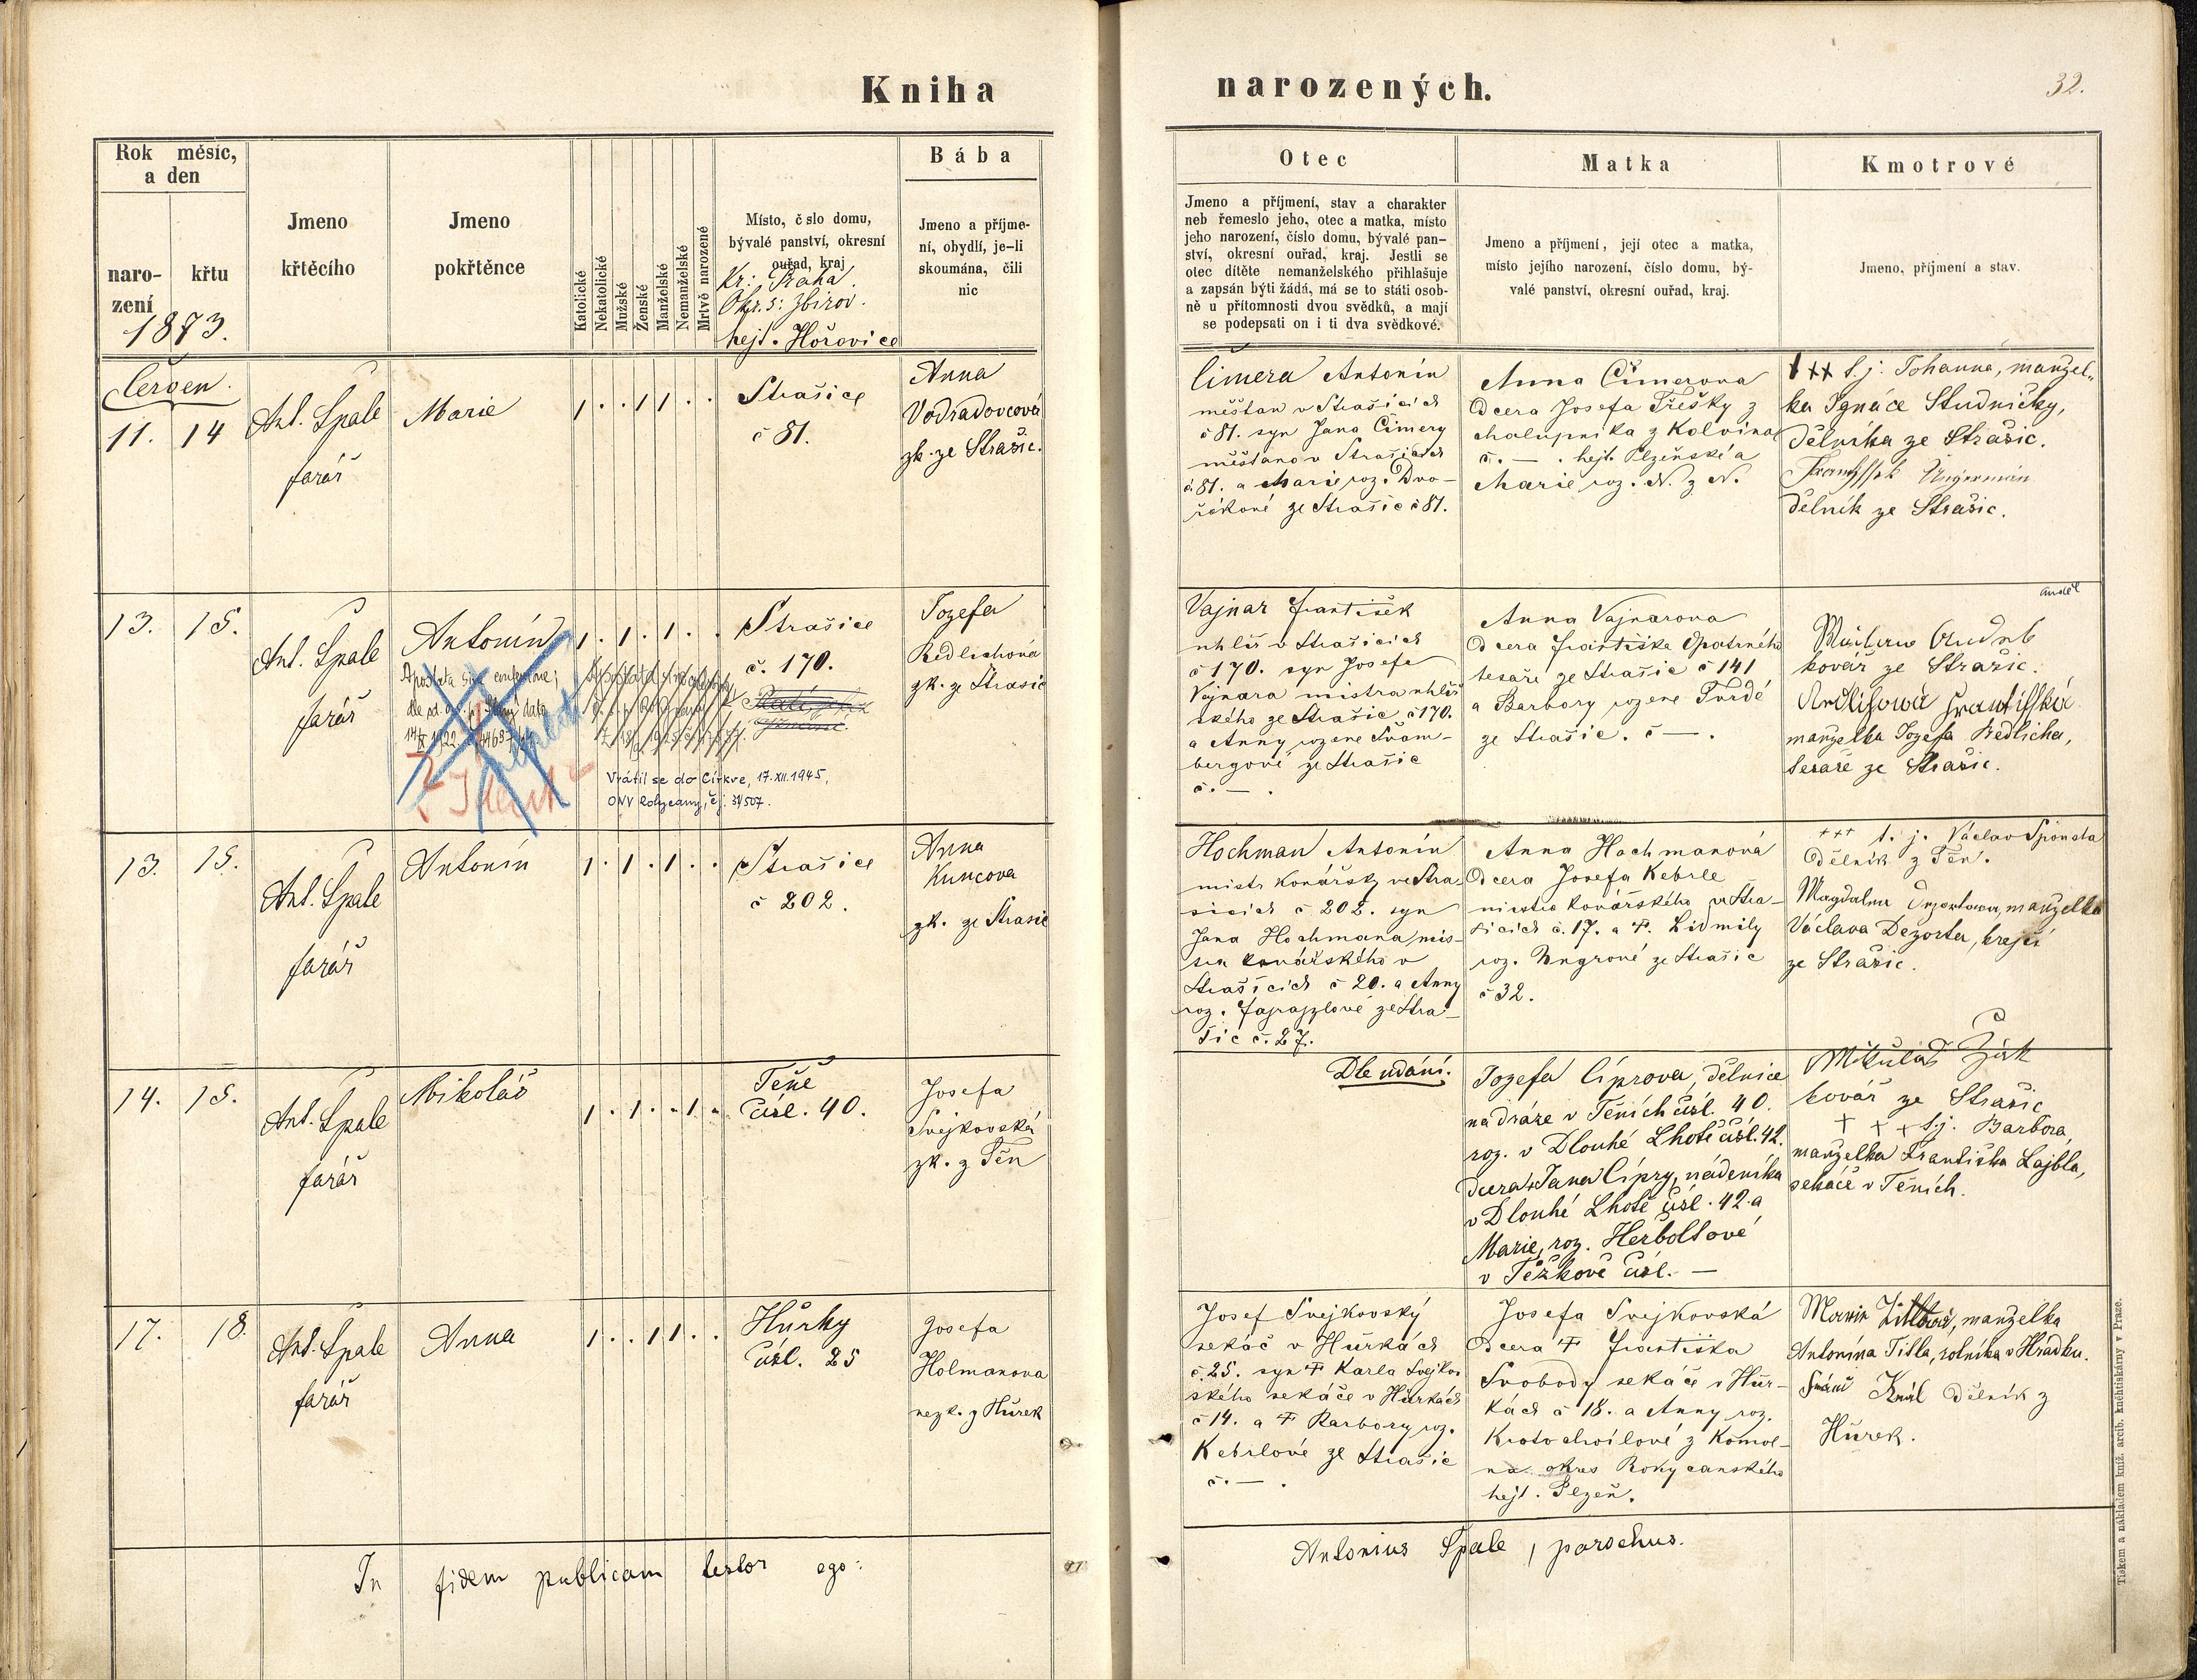 Kniha narozených.
32.
Rok měsíc,
a den
naro-
zení
křtu
1873.
Jmeno
křtěcího
Jmeno
pokřtěnce
Katolické
Nekatolické
Mužské
Ženské
Manželské
Nemanželské
Mrtvě narozené
Místo, č slo domu,
bývalé panství, okresní
ouřad, kraj
Kr: Praha.
Okr. s: Zbirov.
hejt. Hořovice
Bába
Jmeno a příjme-
ní, obydlí, je-li
skoumána, čili
nic
Otec
Jmeno a příjmení, stav a charakter
neb řemeslo jeho, otec a matka, místo
jeho narození, číslo domu, bývalé pan-
ství, okresní ouřad, kraj. Jestli se
otec dítěte nemanželského přihlašuje
a zapsán býti žádá, má se to státi osob-
ně u přítomnosti dvou svědků, a mají
se podepsati on i ti dva svědkové.
Matka
Jmeno a příjmení, její otec a matka,
místo jejího narození, číslo domu, bý-
valé panství, okresní ouřad, kraj.
Kmotrové
Jmeno, příjmení a stav.
Červen.
11. 14
Ant. Spale
farář
Marie
1 . . 1 1 . .
Strašice
č 81.
Anna
Vodradovcová
zk. ze Strašic.
Čimera Antonín
měštan v Strašicích
č 81. syn Jana Čimery
měštana v Strašicích
č 81. a Marie roz. Dvo-
řákové ze Strašic č 81.
Anna Čimerova
Dcera Josefa Třešky z
chalupníka z Kolvína
č. — . hejt. Plzeňské a
Marie roz. N. z N.
xxx t. j. Johanna, manžel-
ka Ignáce Studničky,
dělníka ze Strašic.
Ungerman
dělník ze Strašic.
13. 15.
Ant. Spale
farář
Antonín
1 . 1 . 1 . .
Vrátil se do Církve, 17.XII.1945,
ONV Rokycany, čj. 31/507.
Strašice
č. 170.
Jozefa
Redlichová
zk. ze Strašic
Vajnar František
uhlíř v Strašicích
č 170. syn Josefa
Vajnara mistra uhlíř
ského ze Strašic č 170.
a Anny rozene Švam-
bergové ze Strašic
č. — .
Anna Vajnarova
Dcera Františka Opatrného
tesaře ze Strašic č 141
a Barbory rozene Tvrdé
ze Strašic. č — .
kovář ze Strašic.
manželka Jozefa Redlicha,
tesaře ze Strašic.
13. 15.
Ant. Spale
farář
Antonín
1 . 1 . 1 . .
Strašice
č 202.
Anna
Kuncova
zk. ze Strašic
Hochman Antonín
mistr kovářský ve Stra-
šicích č 202. syn
Jana Hochmana mis-
tra kovářského v
Strašicích č 20. a Anny
ze Stra-
šic č. 27.
Anna Hochmanová
Dcera Josefa Kebrle
mistra kovářského ve Stra-
šicích č. 17. a Ŧ. Lidmily
roz. Ungrové ze Strašic
č 32.
+++ t. j. Václav Sponsta
dělník z Těn.
Magdalena manželka
Václava Dezorta, krejčí
ze Strašic.
14. 15.
Ant. Spale
farář
Mikoláš
1 . 1 . . 1 .
Těně
čísl. 40.
Josefa
Svejkovská
zk. z Těn
Dle udání.
Jozefa Cíprova, dělnice
na dráze v Těních čísl. 40.
roz. v Dlouhé Lhotě čísl. 42.
dcera Jana Cípry, nádeníka
v Dlouhé Lhotě čísl. 42. a
Marie, roz. Herboltové
v Těžkově čísl. —
Mikuláš Žák
kovář ze Strašic
+ + + t.j. Barbora,
manželka Františka Lajbla,
sekáče v Těních.
17. 18.
Ant. Spale
farář
Anna
1 . . 1 1 . .
Hůrky
čísl. 25
Josefa
Holmanova
nezk. z Hůrek
Josef Svejkovský
sekáč v Hůrkách
č. 25. syn Ŧ Karla Svejkov
ského sekáče v Hůrkách
č 14. a Ŧ Barbory roz.
Kebrlové ze Strašic
č. — .
Josefa Svejkovská
Dcera Ŧ Františka
Svobody sekáče v Hůr-
kách č 18. a Anny roz.
Kratochvílové z Komor-
na okres Rokycanského
hejt. Plzeň.
manželka
Antonína Titla, rolníka v Hradku.
Král dělník z
Hůrek.
In fidem publicam testor ego:
Antonius Spale, parochus.
Tiskem a nákladem kníž. arcib. kněhtiskárny v Praze.